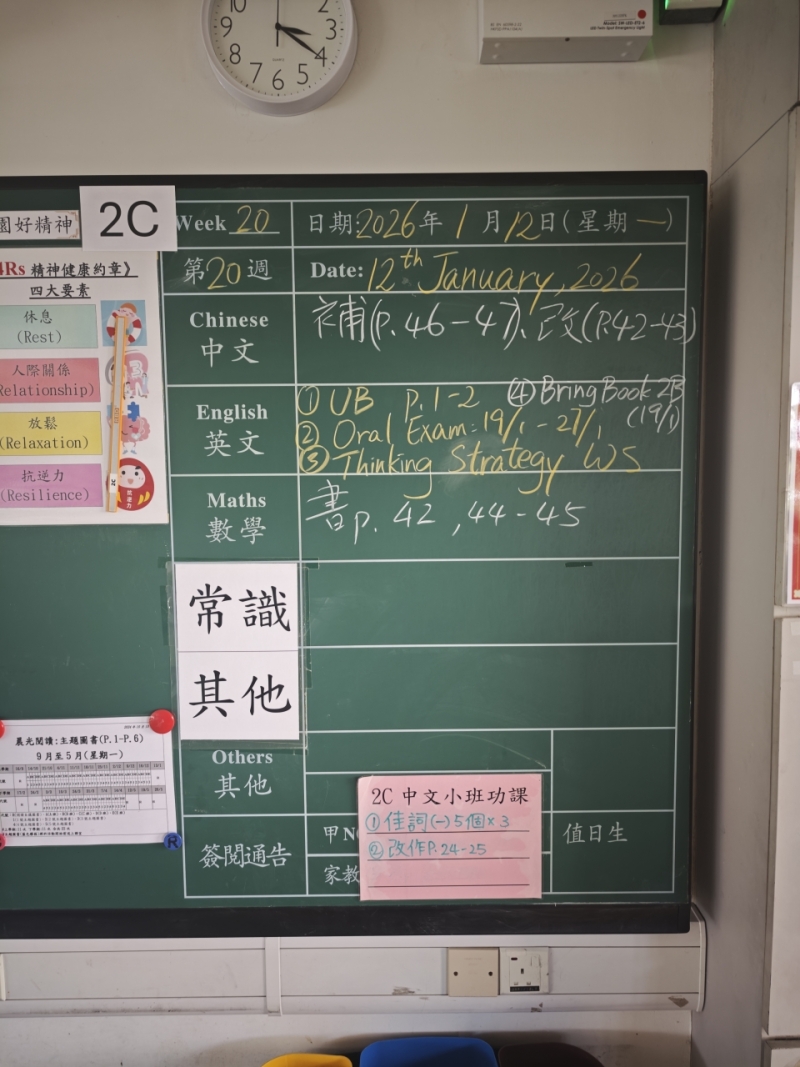 10
2
9
3
8
4
7
6
5
園好精神
2C
Week 20
日期:2026年 1 月 12日(星期一)
第20週
Date: 12th January, 2026
4Rs 精神健康約章》
四大要素
休息
(Rest)
人際關係
Relationship)
放鬆
(Relaxation)
抗逆力
(Resilience)
Chinese
中文
補(P. 46-47)、改(P.42-43)
English
英文
① UB p.1-2
④ Bring Book 2B
(19/1)
② Oral Exam: 19/1 - 21/1
③ Thinking Strategy WS
Maths
數學
書p. 42, 44-45
常識
其他
晨光閱讀:主題圖書(P.1-P.6)
9月至5月(星期一)
R
Others
其他
簽閱通告
甲N
家教
值日生
2C 中文小班功課
① 佳詞(一)5個×3
② 改作P.24-25